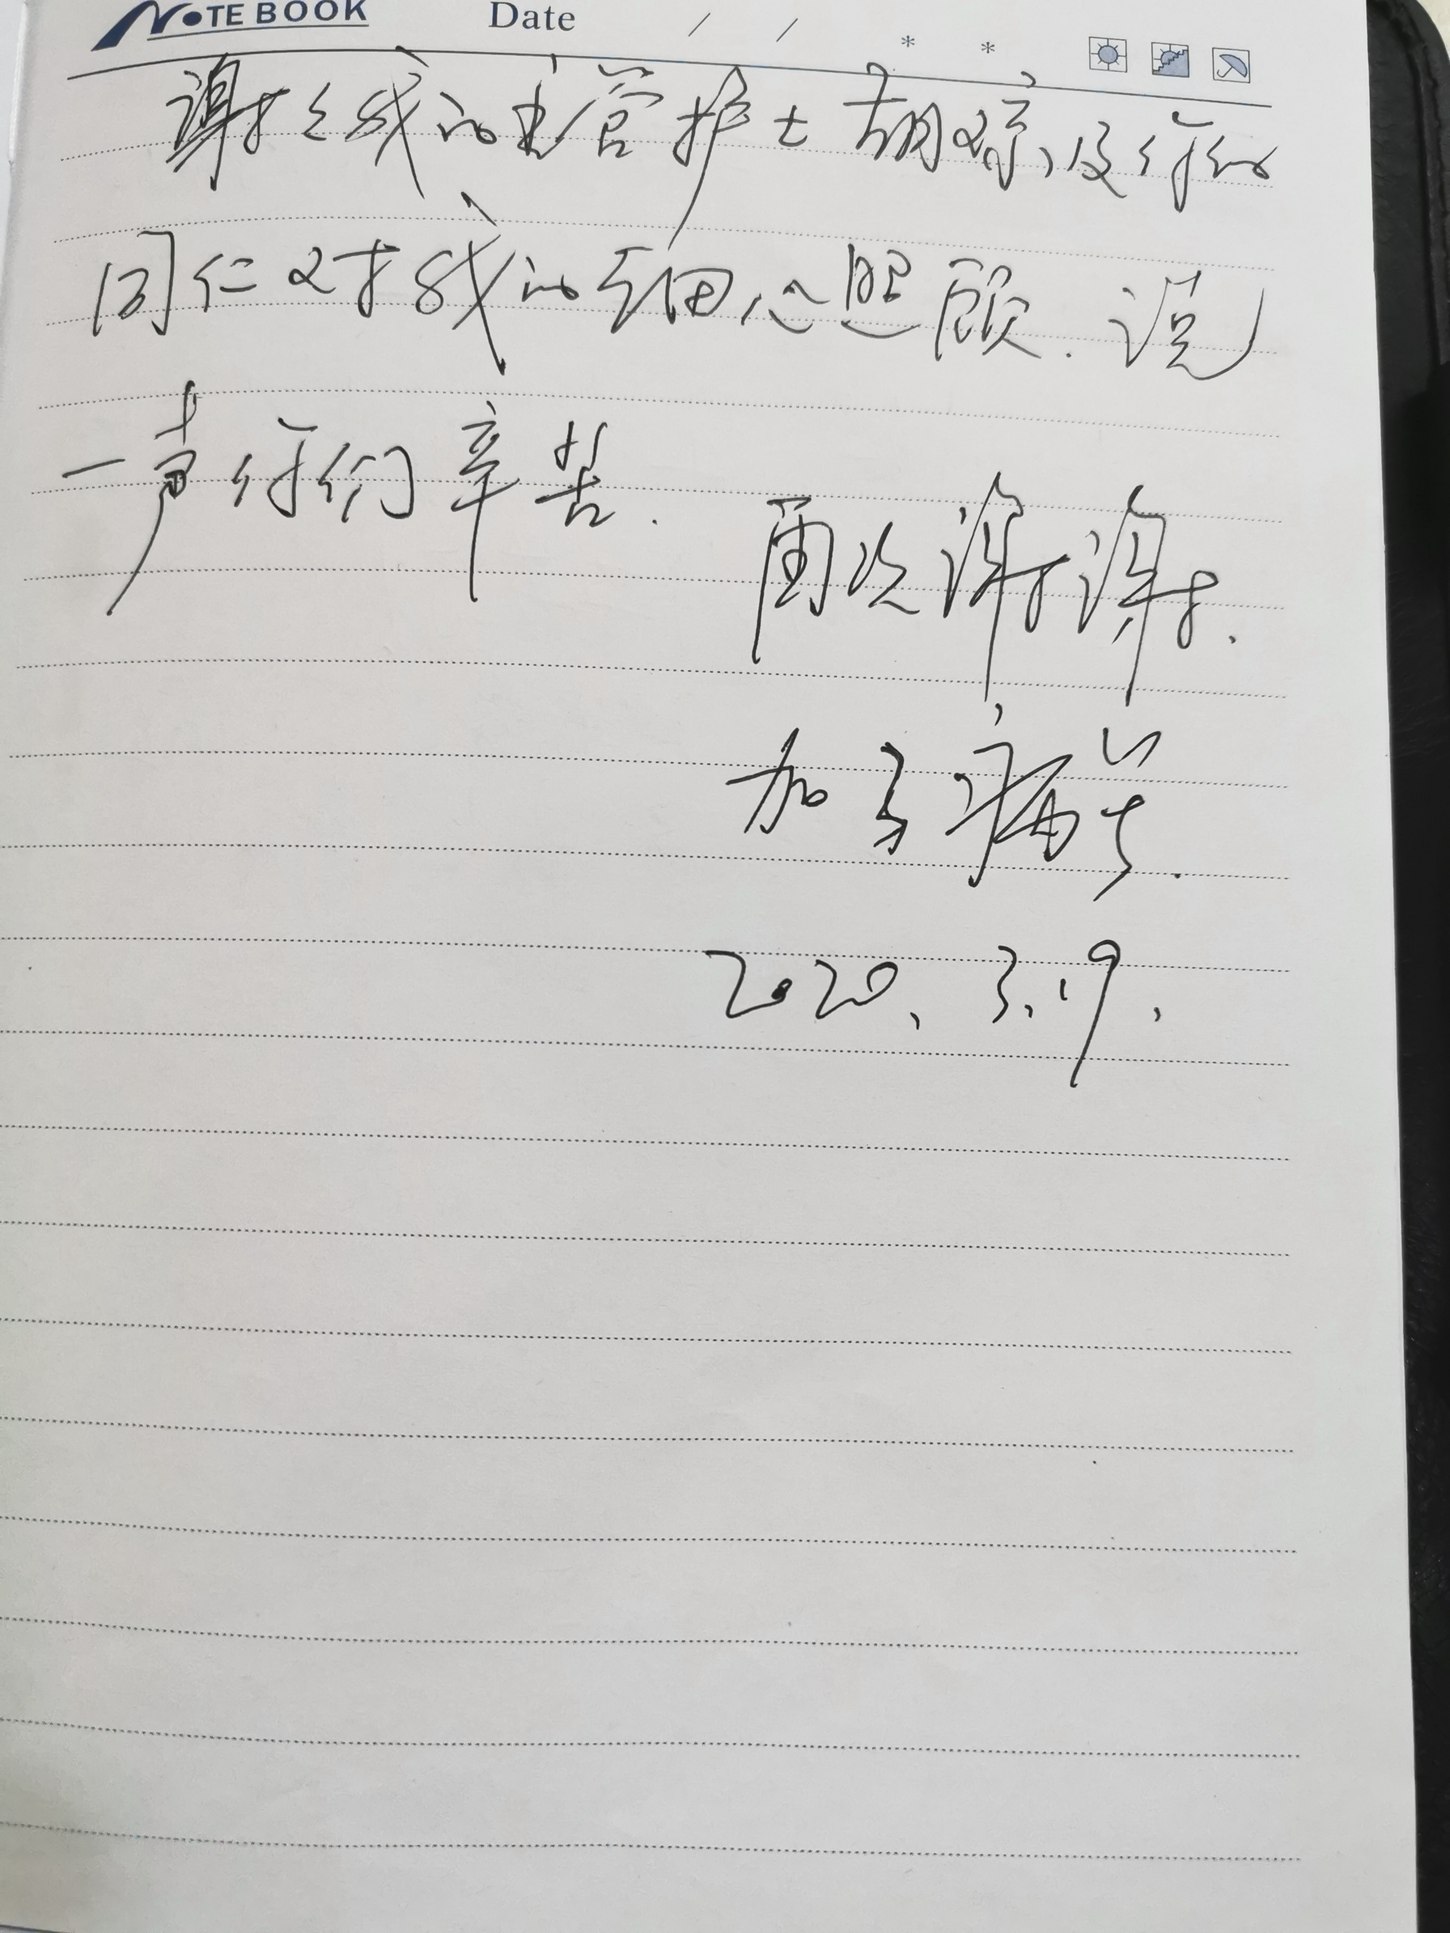 NOTEBOOK Date / / * *
谢谢我的主管护士胡琼,及你的
同仁对我的细心照顾.说
一声你们辛苦.
再次谢谢.
加3病号.
2020.3.19.